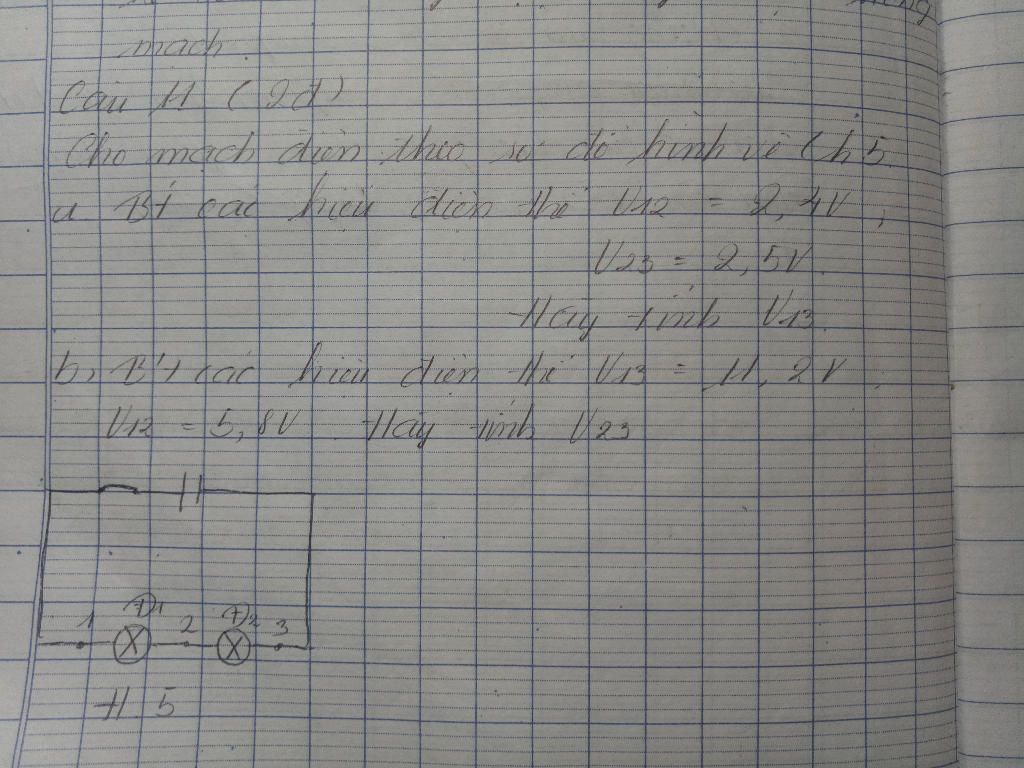 mạch.
Câu 11 (2đ)
Cho mạch điện theo sơ đồ hình vẽ (h5
a. B't các hiệu điện thế U12 = 2,4V;
U23 = 2,5V.
Hãy tính U13.
b, B't các hiệu điện thế U13 = 11,2V;
U12 = 5,8V. Hãy tính U23
1 Đ1 2 Đ2 3
H.5